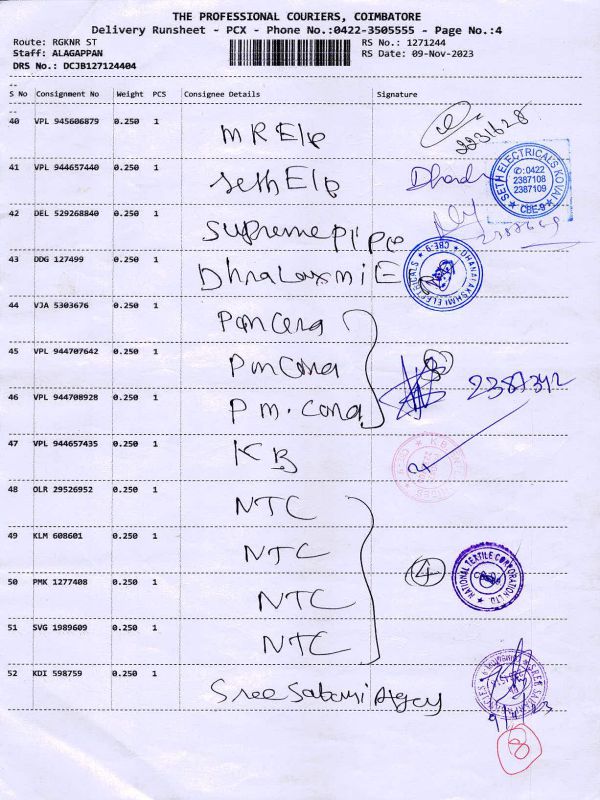 THE PROFESSIONAL COURIERS, COIMBATORE
Delivery Runsheet - PCX - Phone No.:0422-3505555 - Page No.:4
Route: RGKNR ST RS No.: 1271244
Staff: ALAGAPPAN RS Date: 09-Nov-2023
DRS No.: DCJB127124404
S No Consignment No Weight PCS Consignee Details Signature
40 VPL 945606879 0.250 1 MR Elp 2231628
41 VPL 944657440 0.250 1 Seth Elp
SETH ELECTRICALS KOVAI
✆:0422
2387108
2387109
CBE-9
42 DEL 529268840 0.250 1 Supreme pipe
43 DDG 127499 0.250 1 Dhnalaxmi E
DHANALAKSHMI ELECTRICALS CBE-9
44 VJA 5303676 0.250 1
45 VPL 944707642 0.250 1 3 2387342
46 VPL 944708928 0.250 1
47 VPL 944657435 0.250 1 KB
K.B.
48 OLR 29526952 0.250 1 NTC
49 KLM 608601 0.250 1 NTC
4
NATIONAL TEXTILE CORPORATION LTD.
50 PMK 1277408 0.250 1 NTC
51 SVG 1989609 0.250 1 NTC
52 KDI 598759 0.250 1 Sree Sabari Agcy
8